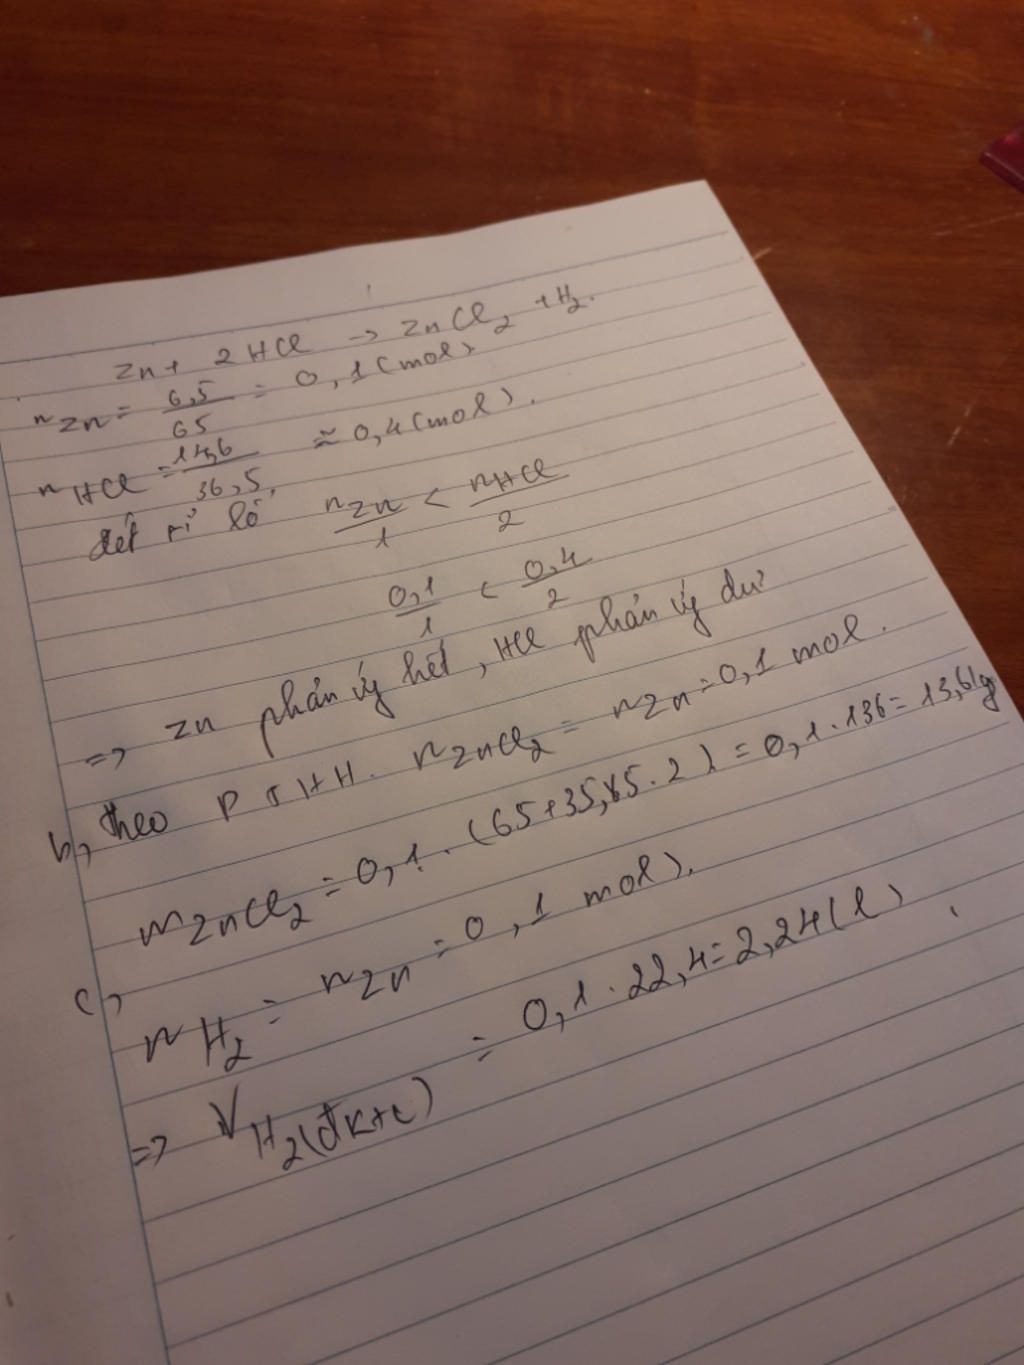 Zn + 2 HCl → ZnCl₂ + H₂.
nZn = 6,5/65 = 0,1 (mol)
nHCl = 14,6/36,5 ≈ 0,4 (mol).
Xét tỉ lệ nZn/1 < nHCl/2
0,1/1 < 0,4/2
=> Zn phản ứng hết, HCl phản ứng dư
b, theo PTHH. nZnCl₂ = nZn = 0,1 mol.
mZnCl₂ = 0,1. (65+35,5.2) = 0,1.136 = 13,6(g
c,
nH₂ = nZn = 0,1 mol).
=> VH₂(đktc) = 0,1.22,4 = 2,24(l)